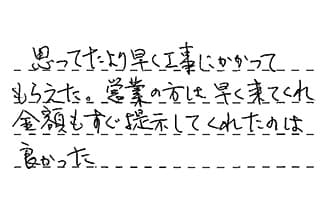 思ってたより早く工事にかかって
もらえた。営業の方は早く来てくれ
金額もすぐ提示してくれたのは
良かった